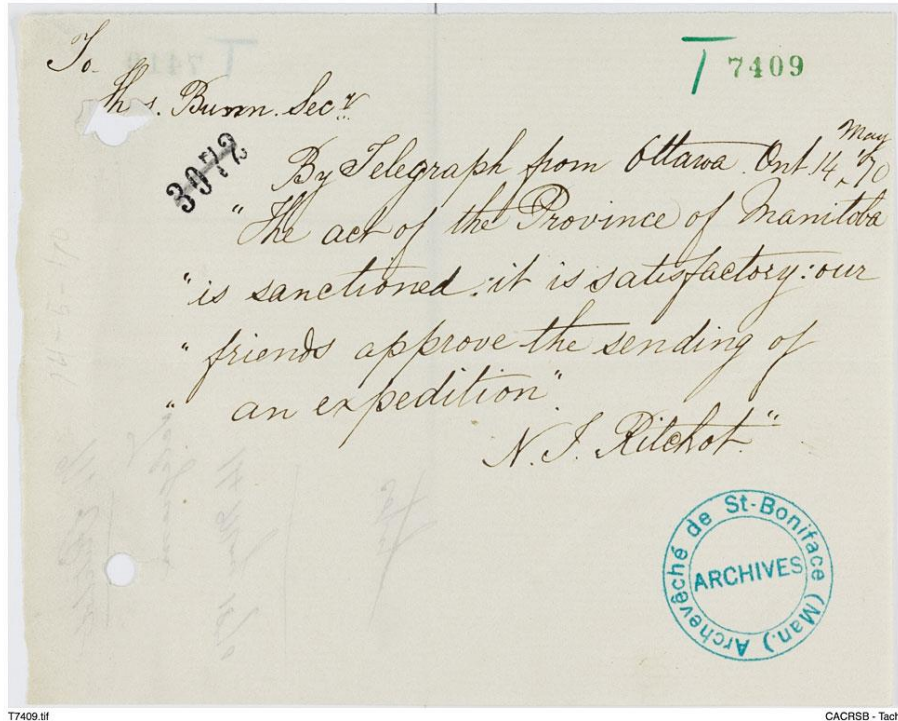 To
T 7409
Thos. Bunn. Secy
3072
May
By Telegraph from Ottawa. Ont. 14 '70
"The act of the Province of Manitoba
"is sanctioned: it is satisfactory: our
"friends approve the sending of
"an expedition"
N. J. Ritchot."
Archevêché de St-Boniface (Man.)
ARCHIVES
T7409.tif
CACRSB - Tach